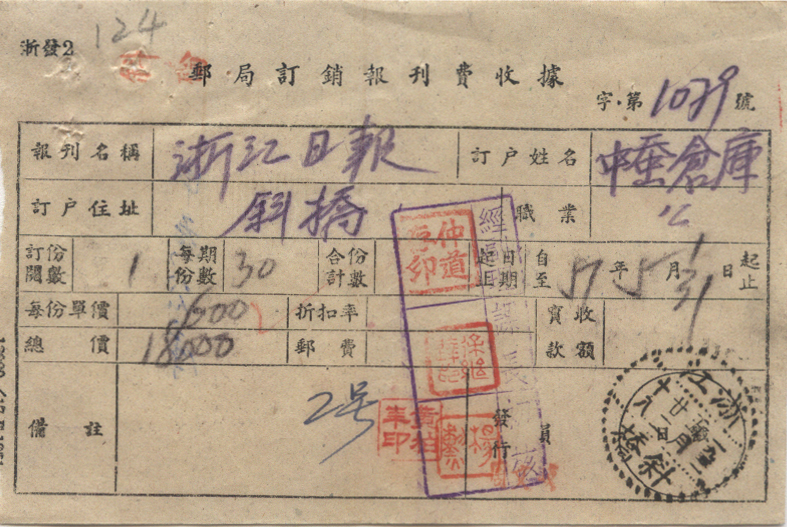 浙發2
124
郵局訂銷報刊費收據
字·第1039號
報刊名稱 浙江日報 訂户姓名 中蚕倉庫
訂户住址 斜橋 職業 公
訂閱份數 1 每期份數 30 合計份數 起止日期 自至 51年5月1/31日起止
每份單價 600 折扣率 實收款額
總價 18000 郵費
備註 2号 發行員
仲道存印
浙江
斜橋